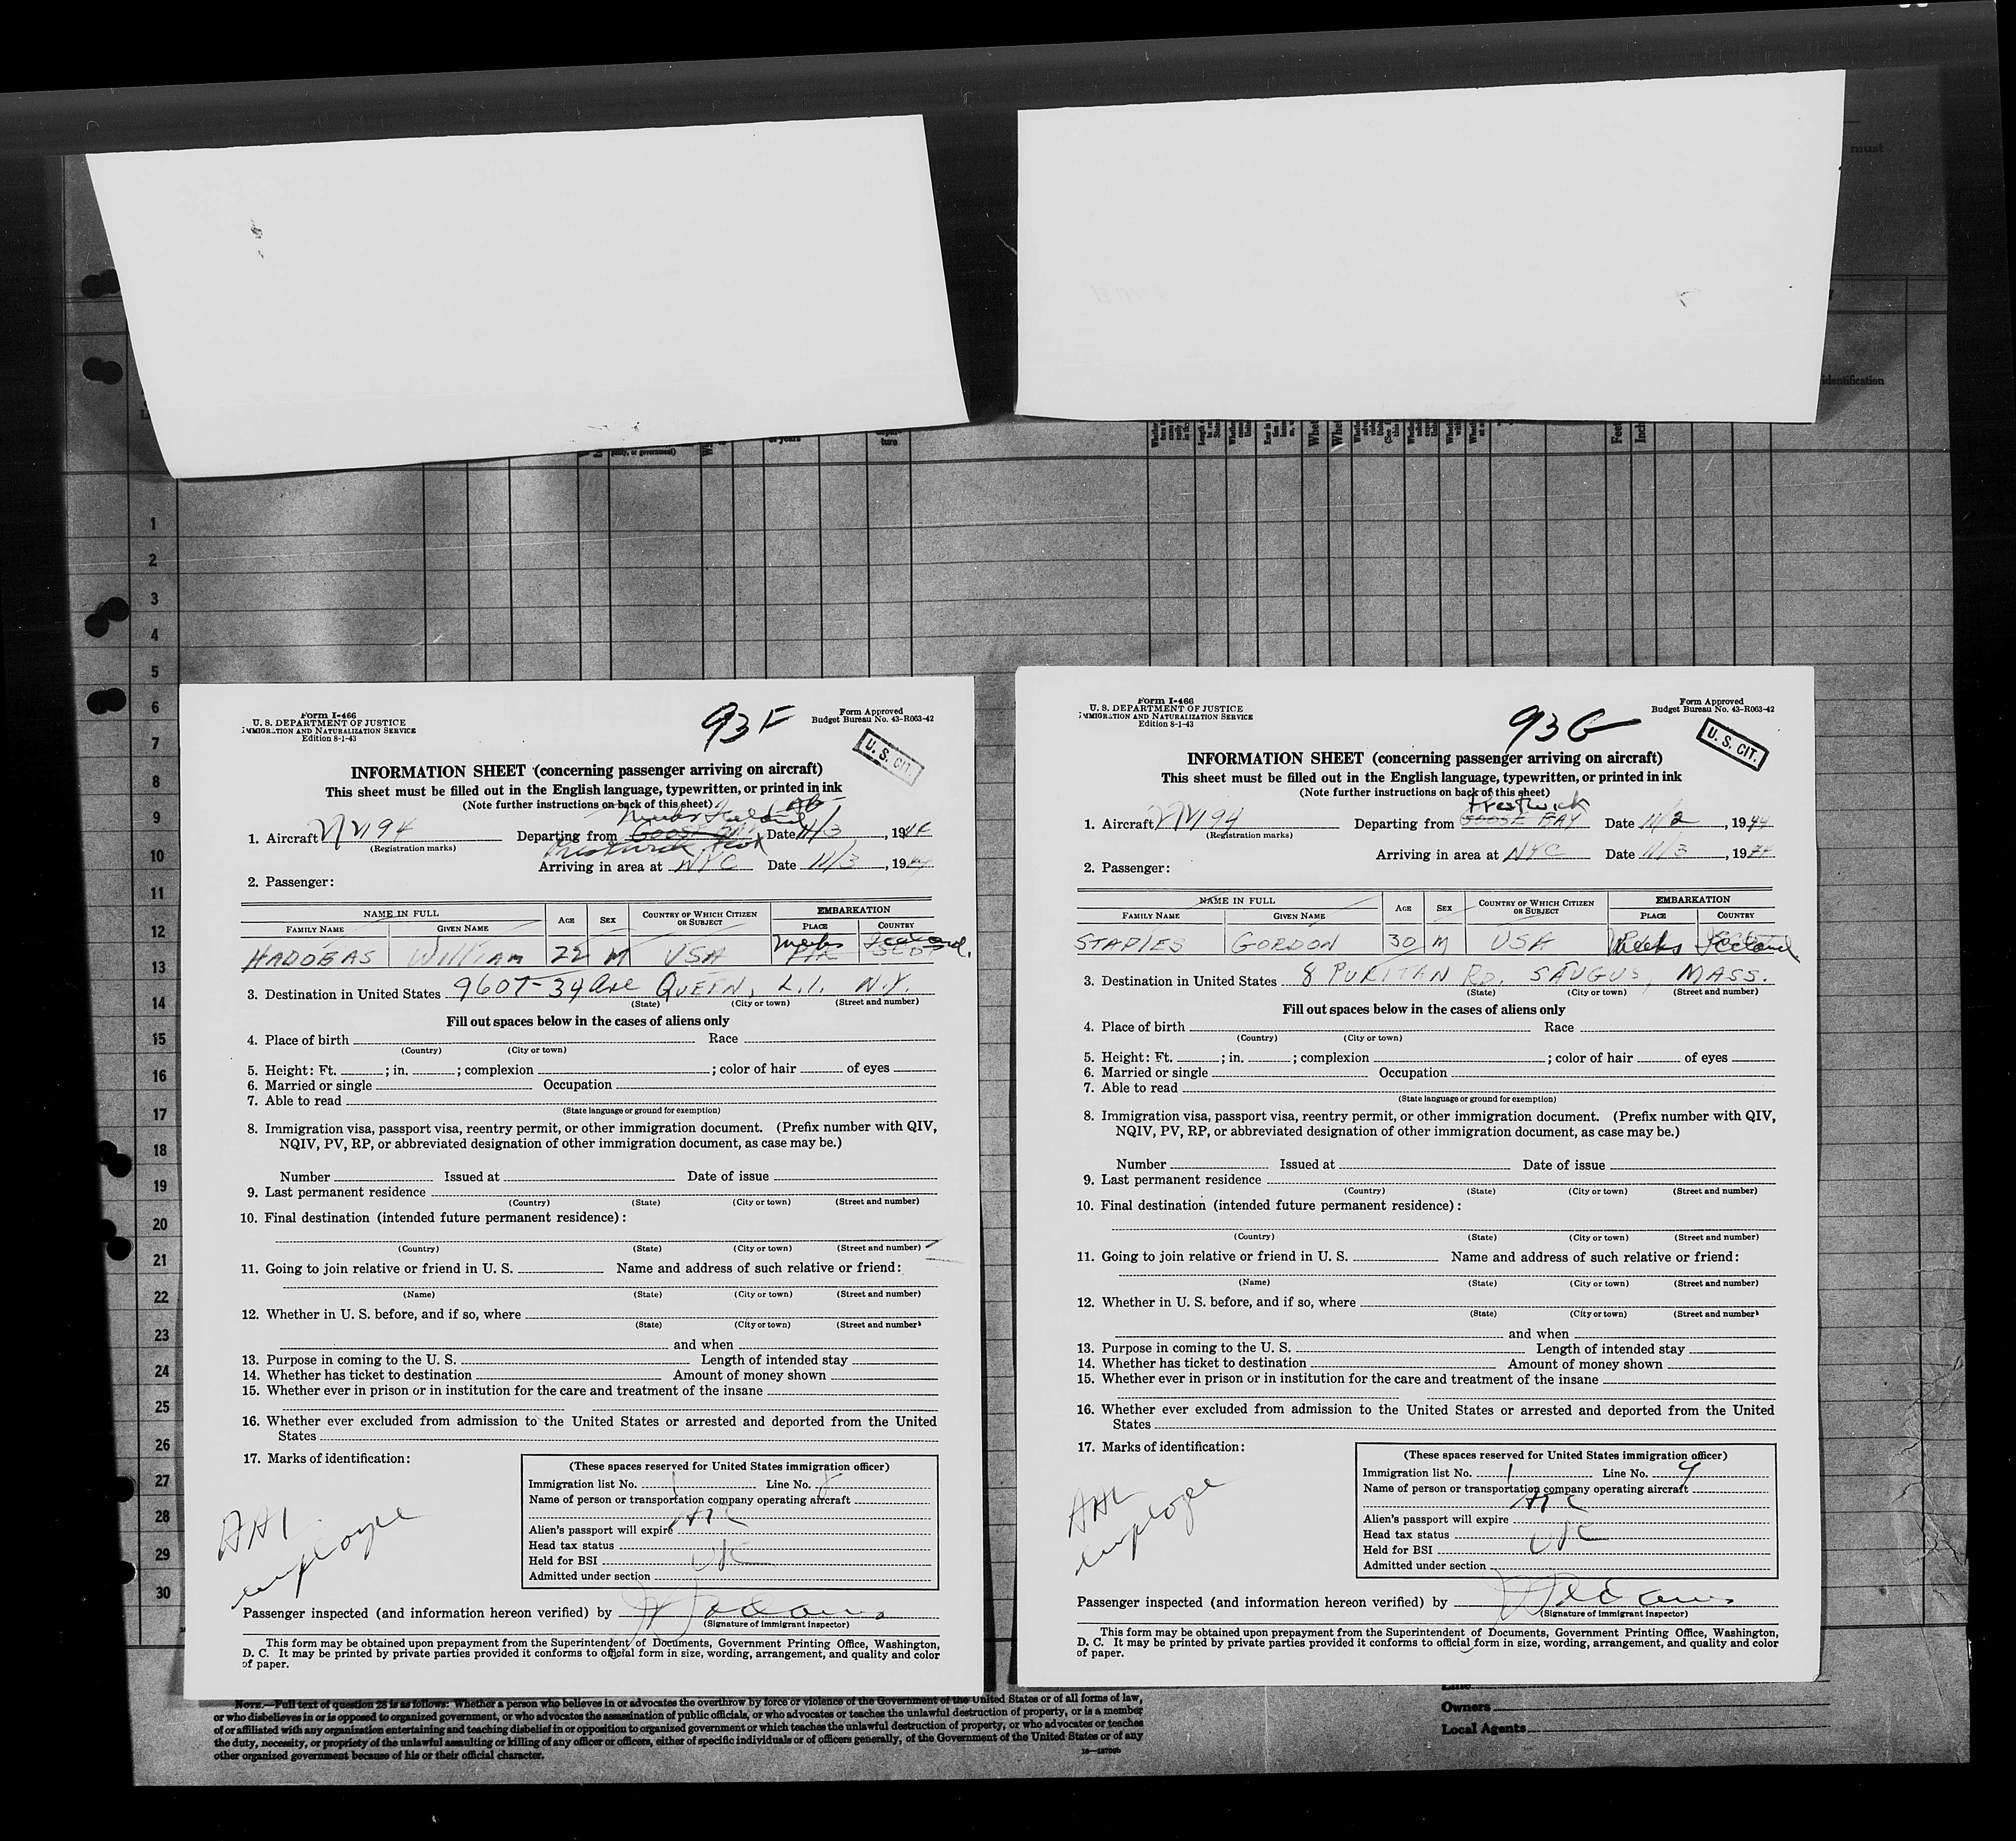 must
identification
ture
1
2
3
4
5
6
7
8
9
10
11
12
13
14
15
16
17
18
19
20
21
22
23
24
25
26
27
28
29
30
Form I-466
U. S. DEPARTMENT OF JUSTICE
IMMIGRATION AND NATURALIZATION SERVICE
Edition 8-1-43
93F
Form Approved
Budget Bureau No. 43-R063-42
U. S. CIT.
INFORMATION SHEET (concerning passenger arriving on aircraft)
This sheet must be filled out in the English language, typewritten, or printed in ink
(Note further instructions on back of this sheet)
Meeks Iceland
1. Aircraft 194 Departing from GOOSE BAY, Date 11/3, 1944
(Registration marks) Prestwick Scot
Arriving in area at NYC Date 11/3, 1944
2. Passenger:
NAME IN FULL AGE SEX COUNTRY OF WHICH CITIZEN OR SUBJECT EMBARKATION
FAMILY NAME GIVEN NAME PLACE COUNTRY
HADOBAS William 22 M USA Meeks Iceland
3. Destination in United States 9607-39 Ave QUEEN, L.I. N.Y.
(State) (City or town) (Street and number)
Fill out spaces below in the cases of aliens only
4. Place of birth Race
(Country) (City or town)
5. Height: Ft. ; in. ; complexion ; color of hair of eyes
6. Married or single Occupation
7. Able to read
(State language or ground for exemption)
8. Immigration visa, passport visa, reentry permit, or other immigration document. (Prefix number with QIV,
NQIV, PV, RP, or abbreviated designation of other immigration document, as case may be.)
Number Issued at Date of issue
9. Last permanent residence
(Country) (State) (City or town) (Street and number)
10. Final destination (intended future permanent residence):
(Country) (State) (City or town) (Street and number)
11. Going to join relative or friend in U. S. Name and address of such relative or friend:
(Name) (State) (City or town) (Street and number)
12. Whether in U. S. before, and if so, where
(State) (City or town) (Street and number)
and when
13. Purpose in coming to the U. S. Length of intended stay
14. Whether has ticket to destination Amount of money shown
15. Whether ever in prison or in institution for the care and treatment of the insane
16. Whether ever excluded from admission to the United States or arrested and deported from the United
States
17. Marks of identification:
AAL
employee
(These spaces reserved for United States immigration officer)
Immigration list No. 1 Line No. 8
Name of person or transportation company operating aircraft
ATC
Alien's passport will expire
Head tax status
Held for BSI
Admitted under section
Passenger inspected (and information hereon verified) by
(Signature of immigrant inspector)
This form may be obtained upon prepayment from the Superintendent of Documents, Government Printing Office, Washington,
D. C. It may be printed by private parties provided it conforms to official form in size, wording, arrangement, and quality and color
of paper.
Form I-466
U. S. DEPARTMENT OF JUSTICE
IMMIGRATION AND NATURALIZATION SERVICE
Edition 8-1-43
93G
Form Approved
Budget Bureau No. 43-R063-42
U. S. CIT.
INFORMATION SHEET (concerning passenger arriving on aircraft)
This sheet must be filled out in the English language, typewritten, or printed in ink
(Note further instructions on back of this sheet)
Prestwick
1. Aircraft 194 Departing from GOOSE BAY Date 11/2, 1944
(Registration marks)
Arriving in area at NYC Date 11/3, 1944
2. Passenger:
NAME IN FULL AGE SEX COUNTRY OF WHICH CITIZEN OR SUBJECT EMBARKATION
FAMILY NAME GIVEN NAME PLACE COUNTRY
STAPLES GORDON 30 M USA Meeks Iceland
3. Destination in United States 8 PURITAN RD. SAUGUS, MASS.
(State) (City or town) (Street and number)
Fill out spaces below in the cases of aliens only
4. Place of birth Race
(Country) (City or town)
5. Height: Ft. ; in. ; complexion ; color of hair of eyes
6. Married or single Occupation
7. Able to read
(State language or ground for exemption)
8. Immigration visa, passport visa, reentry permit, or other immigration document. (Prefix number with QIV,
NQIV, PV, RP, or abbreviated designation of other immigration document, as case may be.)
Number Issued at Date of issue
9. Last permanent residence
(Country) (State) (City or town) (Street and number)
10. Final destination (intended future permanent residence):
(Country) (State) (City or town) (Street and number)
11. Going to join relative or friend in U. S. Name and address of such relative or friend:
(Name) (State) (City or town) (Street and number)
12. Whether in U. S. before, and if so, where
(State) (City or town) (Street and number)
and when
13. Purpose in coming to the U. S. Length of intended stay
14. Whether has ticket to destination Amount of money shown
15. Whether ever in prison or in institution for the care and treatment of the insane
16. Whether ever excluded from admission to the United States or arrested and deported from the United
States
17. Marks of identification:
AAL
employee
(These spaces reserved for United States immigration officer)
Immigration list No. 1 Line No. 9
Name of person or transportation company operating aircraft
ATC
Alien's passport will expire
Head tax status
Held for BSI
Admitted under section
Passenger inspected (and information hereon verified) by
(Signature of immigrant inspector)
This form may be obtained upon prepayment from the Superintendent of Documents, Government Printing Office, Washington,
D. C. It may be printed by private parties provided it conforms to official form in size, wording, arrangement, and quality and color
of paper.
NOTE.—Full text of question 28 is as follows: Whether a person who believes in or advocates the overthrow by force or violence of the Government of the United States or of all forms of law,
or who disbelieves in or is opposed to organized government, or who advocates the assassination of public officials, or who advocates or teaches the unlawful destruction of property, or is a member
of or affiliated with any organization entertaining and teaching disbelief in or opposition to organized government or which teaches the unlawful destruction of property, or who advocates or teaches
the duty, necessity, or propriety of the unlawful assaulting or killing of any officer or officers, either of specific individuals or of officers generally, of the Government of the United States or of any
other organized government because of his or their official character.
Owners
Local Agents